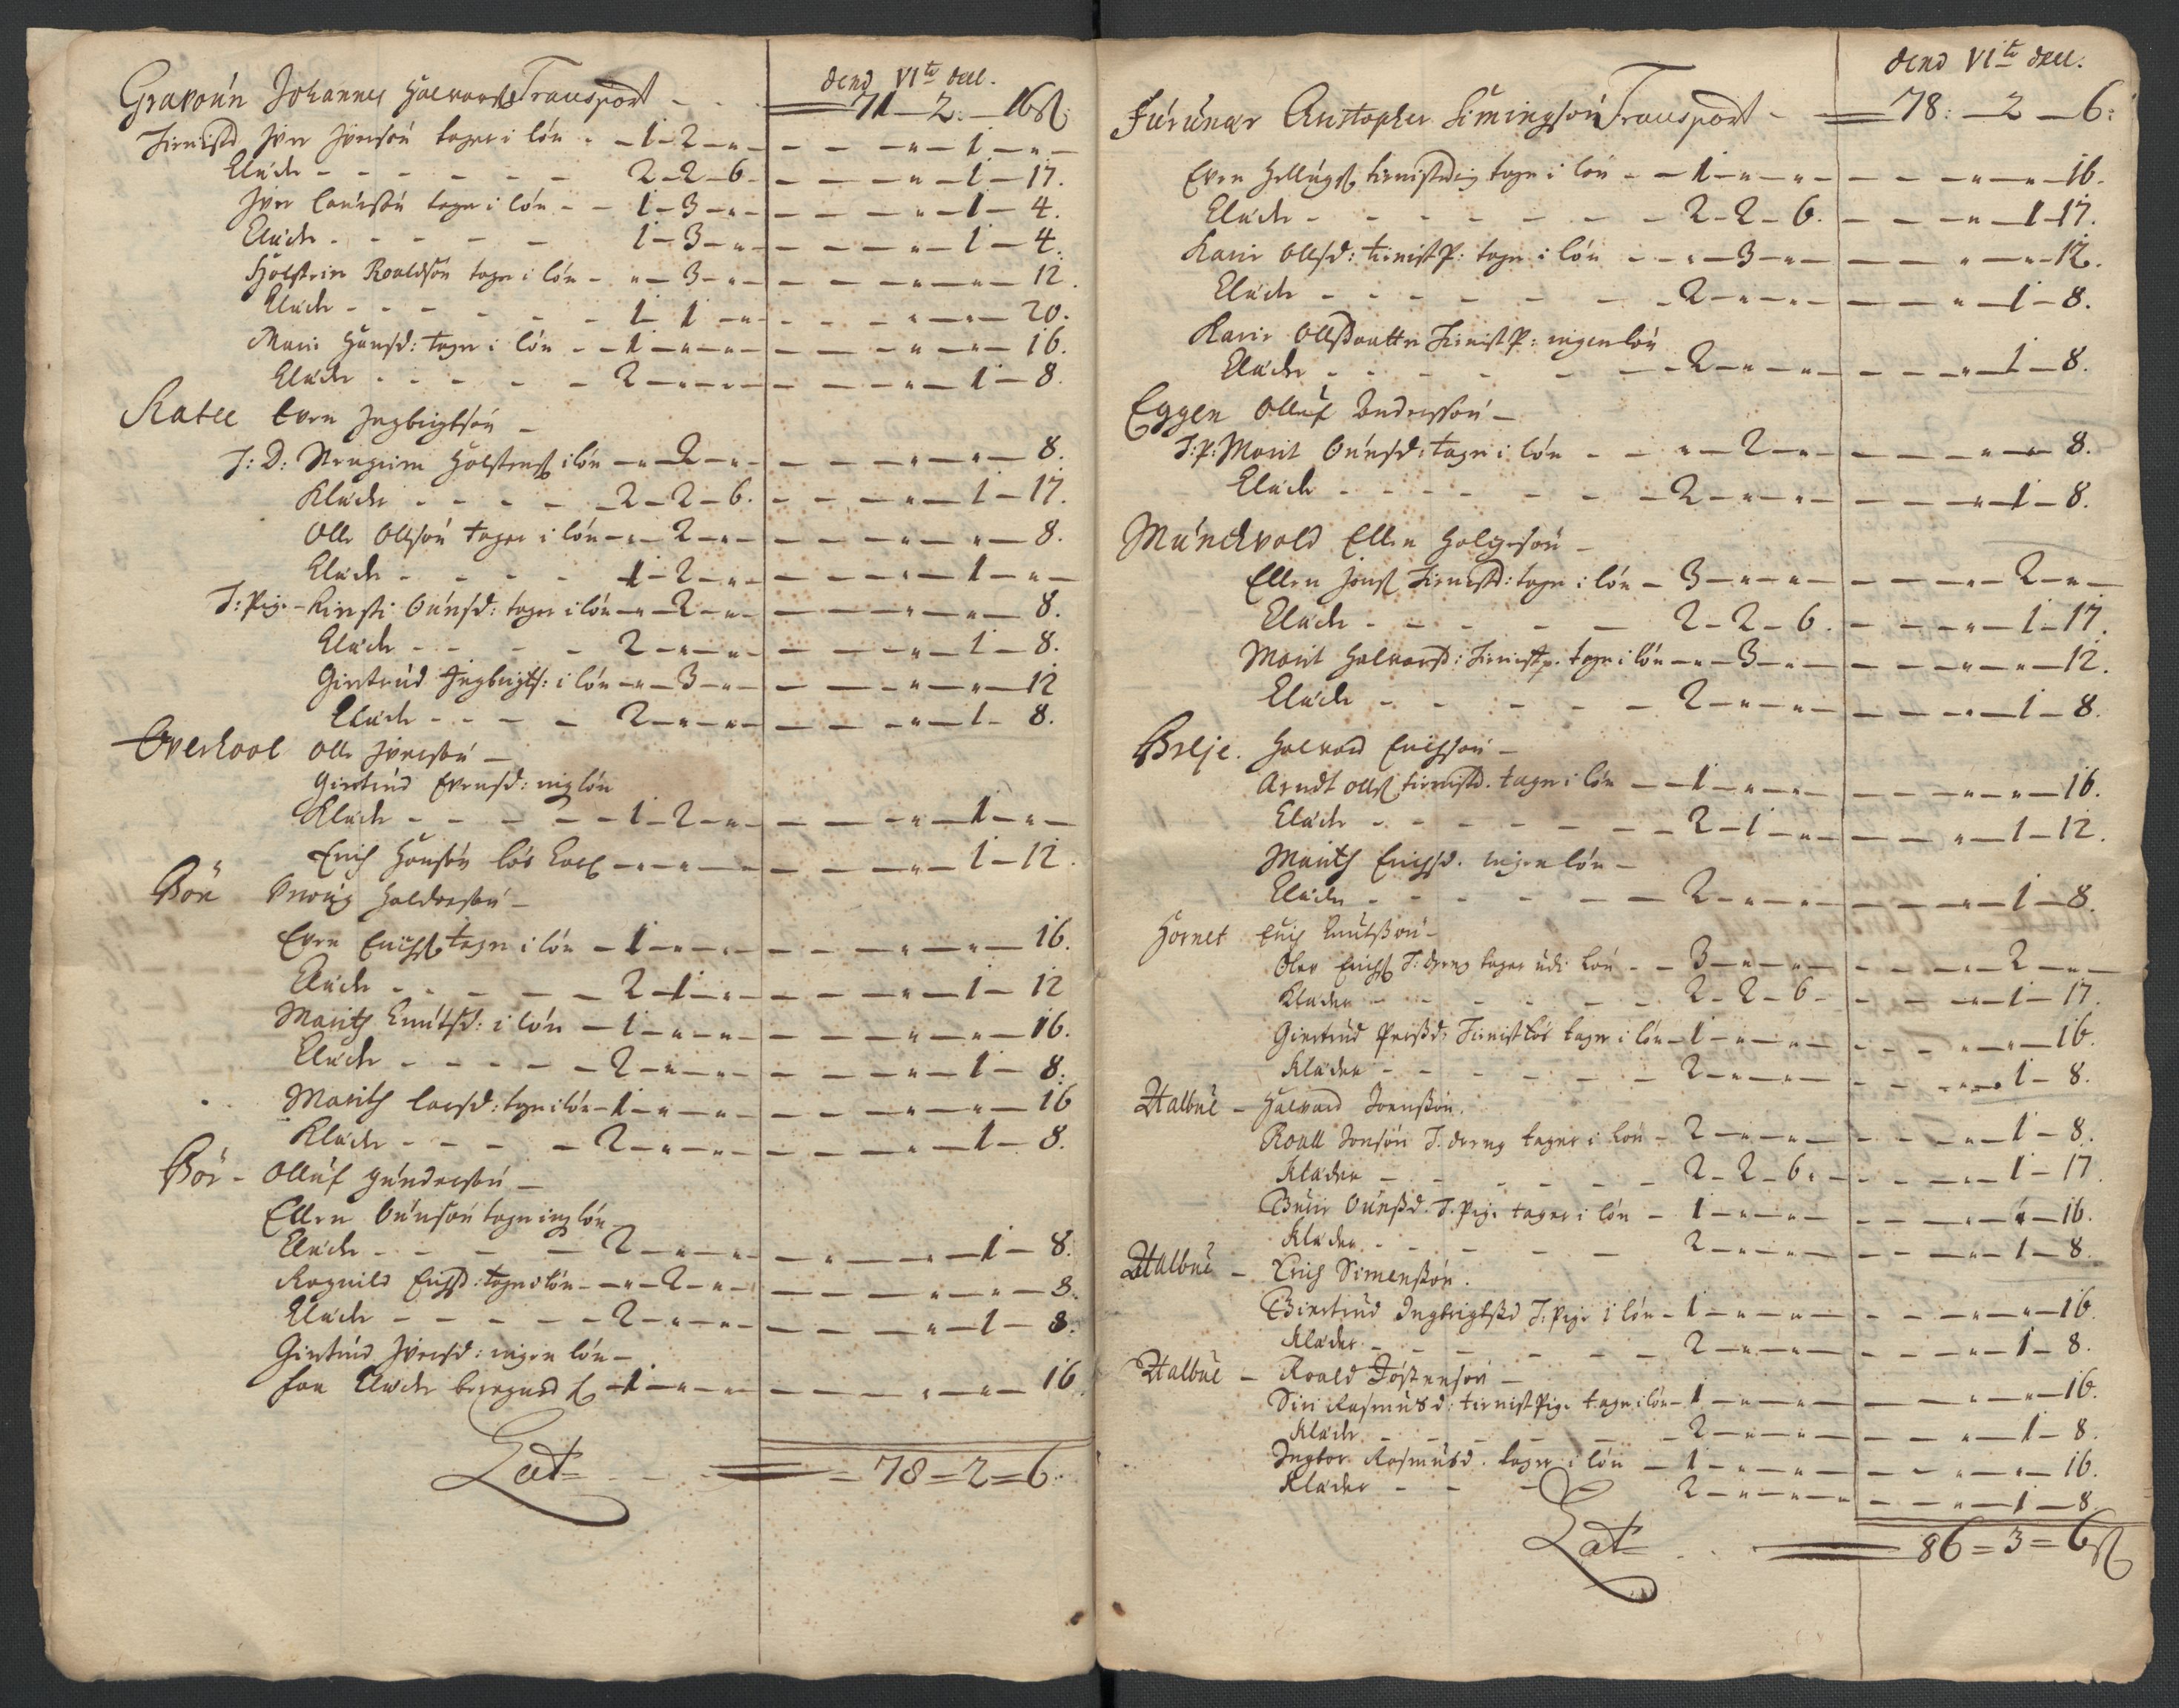 dend VIte deel.
Gravoún Johannes Halvorß Transport - - 71 – 2: – 16ß:
Tienistd Jver Jversøn tager i lón - – 1 – 2 – „ – – – „ – 1 – „ –
Klæde - - - - - - 2 – 2 – 6. – – – „ – 1 – 17.
Jver Laúrsøn tager i lón - - 1 – 3 – „ – – – „ – 1 – 4.
Klæde - - - - - 1 – 3 – „ – – – „ – 1 – 4.
Holstein Roaldsøn tager i lón - „ – 3 – „ – – – „ – „ – 12.
Klæde - - - - - - 1 – 1 – „ – – – „ – „ – 20.
Marit Hansd: tager i lón - – 1 – „ – „ – – – „ – „ – 16.
Klæde - - - - - 2 – „ – „ – – – „ – 1 – 8.
Ratee Even Ingbrigtsøn –
T: D: Holstenß i lón – „ – 2 – „ – – – „ – „ – 8.
Klæde - - - - 2 – 2 – 6. – – – „ – 1 – 17.
Olle Ollsøn tager i lón – „ – 2 – „ – – – „ – „ – 8.
Klæde - - - - 1 – 2 – „ – – – „ – 1 – „ –
T: Pige – Kirsti Oúnsd: tager i lón – „ – 2 – „ – – – „ – „ – 8.
Klæde - - - - 2 – „ – „ – – – „ – 1 – 8.
Giertrúd Ingbrigts: i lón – „ – 3 – „ – – – „ – „ – 12
Klæde - - - - 2 – „ – „ – – – „ – 1 – 8.
Overkool Olle Jversøn –
Giertrúd Evensd: ing lón
Klæde - - - - - 1 – 2 – „ – – – „ – 1 – „ –
Erich Hansøn lós Karl – „ – „ – – – „ – 1 – 12.
Bøe Haldorsøn –
Even Erichß tager i lón – 1 – „ – „ – – – „ – „ – 16.
Klæde - - - - - 2 – 1 – „ – – – „ – 1 – 12
Marith Knútsd: i lón – 1 – „ – „ – – – „ – „ – 16.
Klæde - - - - - 2 – „ – „ – – – „ – 1 – 8.
Marith Larsd: tager i lón – 1 – „ – „ – – – „ – „ – 16
Klæde - - - - 2 – „ – „ – – – „ – 1 – 8.
Bør – Ollúf Gúndersøn –
Ellen Oúnsøn tager ing lón
Klæde - - - - 2 – „ – „ – – – „ – 1 – 8.
Ragnild Erichsd: tager i lón – „ – 2 – „ – – – „ – „ – 8.
Klæde - - - - - 2 – „ – „ – – – „ – 1 – 8.
Giertrúd Jversd: ingen lón –
for Klæde beregned – 1 – „ – „ – – – „ – „ – 16.
Lat= – 78 = 2 = 6.
dend VIte deel.
Fúrúnær Christopher Simingsøn Transport - 78: – 2 – 6:
Even Hellúgß tienistdreng tager i lón - – 1 – „ – „ – – – „ – „ – 16.
Klæde - - - - - - - 2 – 2 – 6. – – – „ – 1 – 17.
Karie Ollsd: tienistP: tager i lón - – „ – 3 – „ – – – „ – „ – 12.
Klæde - - - - - - 2 – „ – „ – – – „ – 1 – 8.
Karie Ollsdaatter TienistP: ingen lón
Klæde - - - - - - 2 – „ – „ – – – „ – 1 – 8.
Eggen Ollúf Andersøn –
T: P: Marit Oúnsd: tager i lón - - „ – 2 – „ – – – „ – „ – 8.
Klæde - - - - - - 2 – „ – „ – – – „ – 1 – 8.
Múnckvold Ellen Helgesøn –
Ellen Jonß Tienistd: tager i lón – 3 – „ – „ – – – „ – 2 – „ –
Klæde - - - - - 2 – 2 – 6. – – – „ – 1 – 17.
Marit Halvorsd: TienistP. tager i lón – „ – 3 – „ – – – „ – „ – 12.
Klæde - - - - - 2 – „ – „ – – – „ – 1 – 8.
Breje. Halvord Erichsøn –
Arndt Ollß tienistd. tager i lón – – 1 – „ – „ – – – „ – „ – 16.
Klæde - - - - - - 2 – 1 – „ – – – „ – 1 – 12.
Marith Erichsd. ingen lón –
Klæde - - - - - - 2 – „ – „ – – – „ – 1 – 8.
Hornet Erich Knútsøn –
Oler Erichß T: dreng tager údi Løn - – 3 – „ – „ – – – „ – 2 – „ –
Klæder - - - - - 2 – 2 – 6 – – – „ – 1 – 17.
Giertrud Persd, Tienist tager i løn – 1 – „ – „ – – – „ – „ – 16.
Klæder - - - - - - 2 – „ – „ – – – „ – 1 – 8.
Halbue – Halvord Joenssøn.
Roall Jonsøn T. dreng tager i Løn – 2 – „ – „ – – – „ – 1 – 8.
Klæder - - - - - 2 – 2 – 6 „ – – – „ – 1 – 17.
Oúnsd. T. Pige tager i løn – 1 – „ – „ – – – „ – „ – 16.
Klæder - - - - - 2 – „ – „ – – – „ – 1 – 8.
Halbue – Erich Simenssøn.
Giertrud Ingbrigtsd T. Pige i løn – 1 – „ – „ – – – „ – „ – 16.
Klæder - - - - - 2 – „ – „ – – – „ – 1 – 8.
Halbue – Roald Jóstensøn –
Siri Rasmusd: tienist Pige tager i løn – 1 – „ – „ – – – „ – „ – 16.
Klæde - - - - - 2 – „ – „ – – – „ – 1 – 8.
Ingbor Rasmusd. tager i løn – 1 – „ – „ – – – „ – „ – 16.
Klæder - - - - 2 – „ – „ – – – „ – 1 – 8.
Lat= – 86 = 3 = 6ß